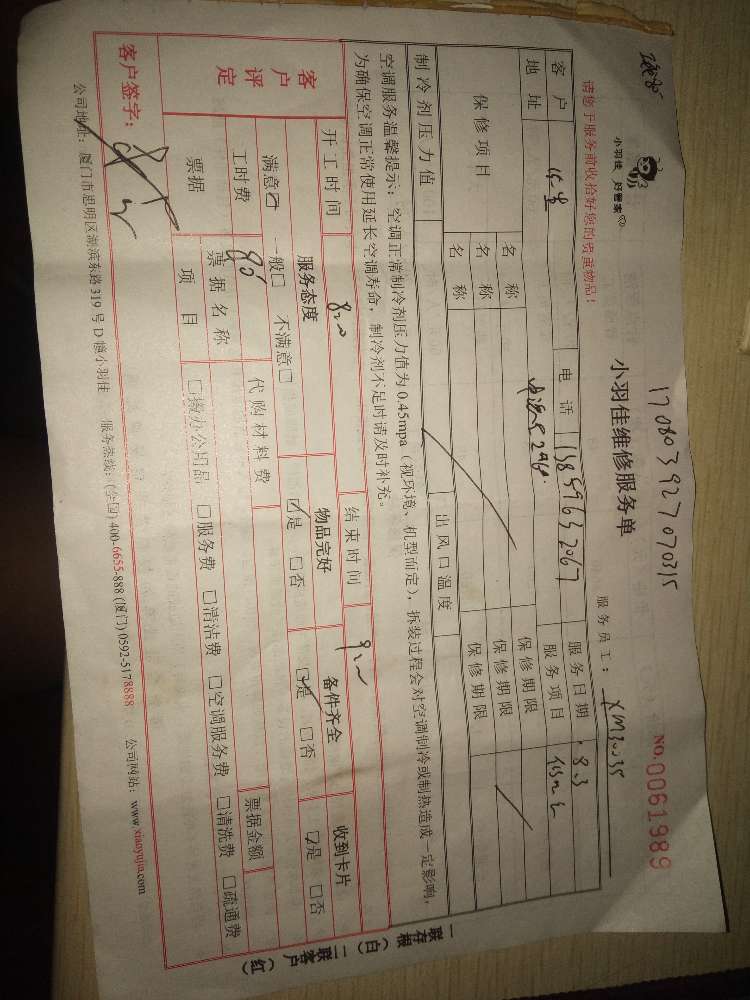 17080392707 0315
小羽佳 好管家
小羽佳维修服务单
NO.0061989
请您于服务前收拾好您的贵重物品!
服务员工: XM30035
客户
电话
服务日期 8.3
地址
服务项目
保修项目
名称
保修期限
名称
保修期限
名称
保修期限
制冷剂压力值
出风口温度
空调服务温馨提示:空调正常制冷剂压力值为0.45mpa(视环境、机型而定),拆装过程会对空调制冷或制热造成一定影响,
为确保空调正常使用延长空调寿命,制冷剂不足时请及时补充。
开工时间
结束时间
客户评定
服务态度
物品完好
备件齐全
收到卡片
满意☑ 一般□ 不满意□
☑是 □否
☑是 □否
☑是 □否
工时费
代购材料费
票据金额
票据
票据名称
项目
□缴办公用品 □服务费 □清洁费 □空调服务费 □清洗费 □疏通费
客户签字:
公司地址:厦门市思明区湖滨东路319号D幢小羽佳 服务热线:(全国)400-6655-888 (厦门)0592-5178888 公司网站:www.xiaoyujia.com
一联存根(白) 二联客户(红)